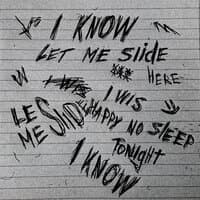 I KNOW
LET ME Slide
HERE
I WIS
LET ME Slide HAPPY NO SLEEP
TONIGHT
I KNOW